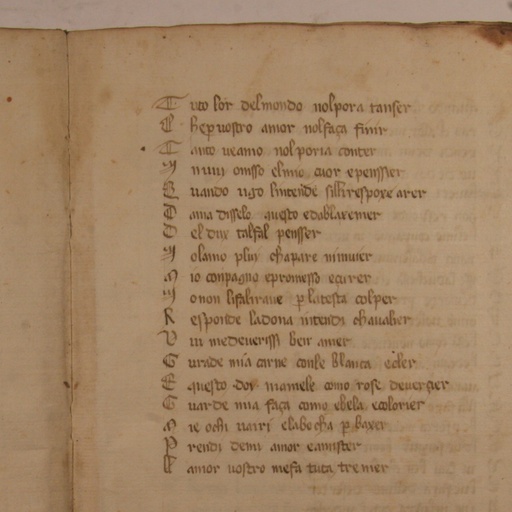 T uto lor delmondo nolpora tanser
C heperuostro amor nolfaça finir
T anto ueamo nolporia conter
I nuui omisso elmio cuor epenssier
Q uando ugo lintende silli respoxe arer
D ama disselo questo edablaxemer
D el dux talfal pensser
N olamo plui chapare nimuier
M io conpagno epromesso eçurer
N onon lifalirave p la testa colper
R esponde ladona intendi chaualier
V ui medeueriss ben amer
G uarde mia carne conle blanca ecler
E questo doi mamele como rose deuerçier
G uarde mia faça como ebela ecolorier
M ie ochi uairi elabocha p baxer
P rendi demi amor eamister
L amor uostro mefa tuta tremer